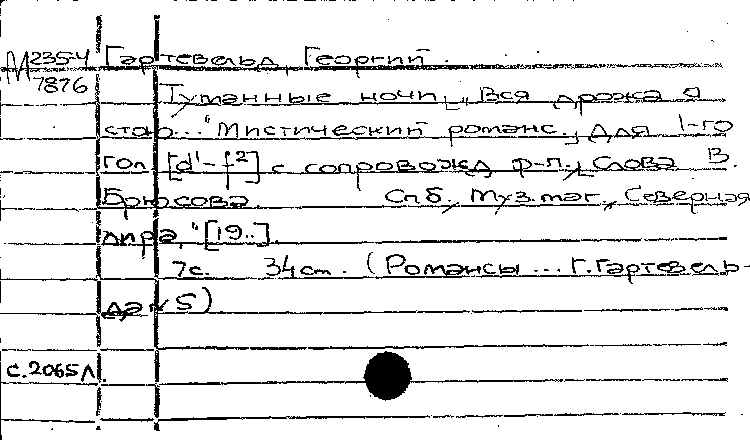 М 235-4 Гартевельд, Георгий.
7876
Туманные ночи. „Вся дрожа я
стою..." Мистический романс. Для 1-го
гол. [d'-f²] с сопровожд ф-п., Слова В.
Брюсова. Спб, Муз. маг., Северная
лира," [19..].
7с. 34cm. (Романсы ... Г. Гартевель-
да N 5)
с. 2065 л